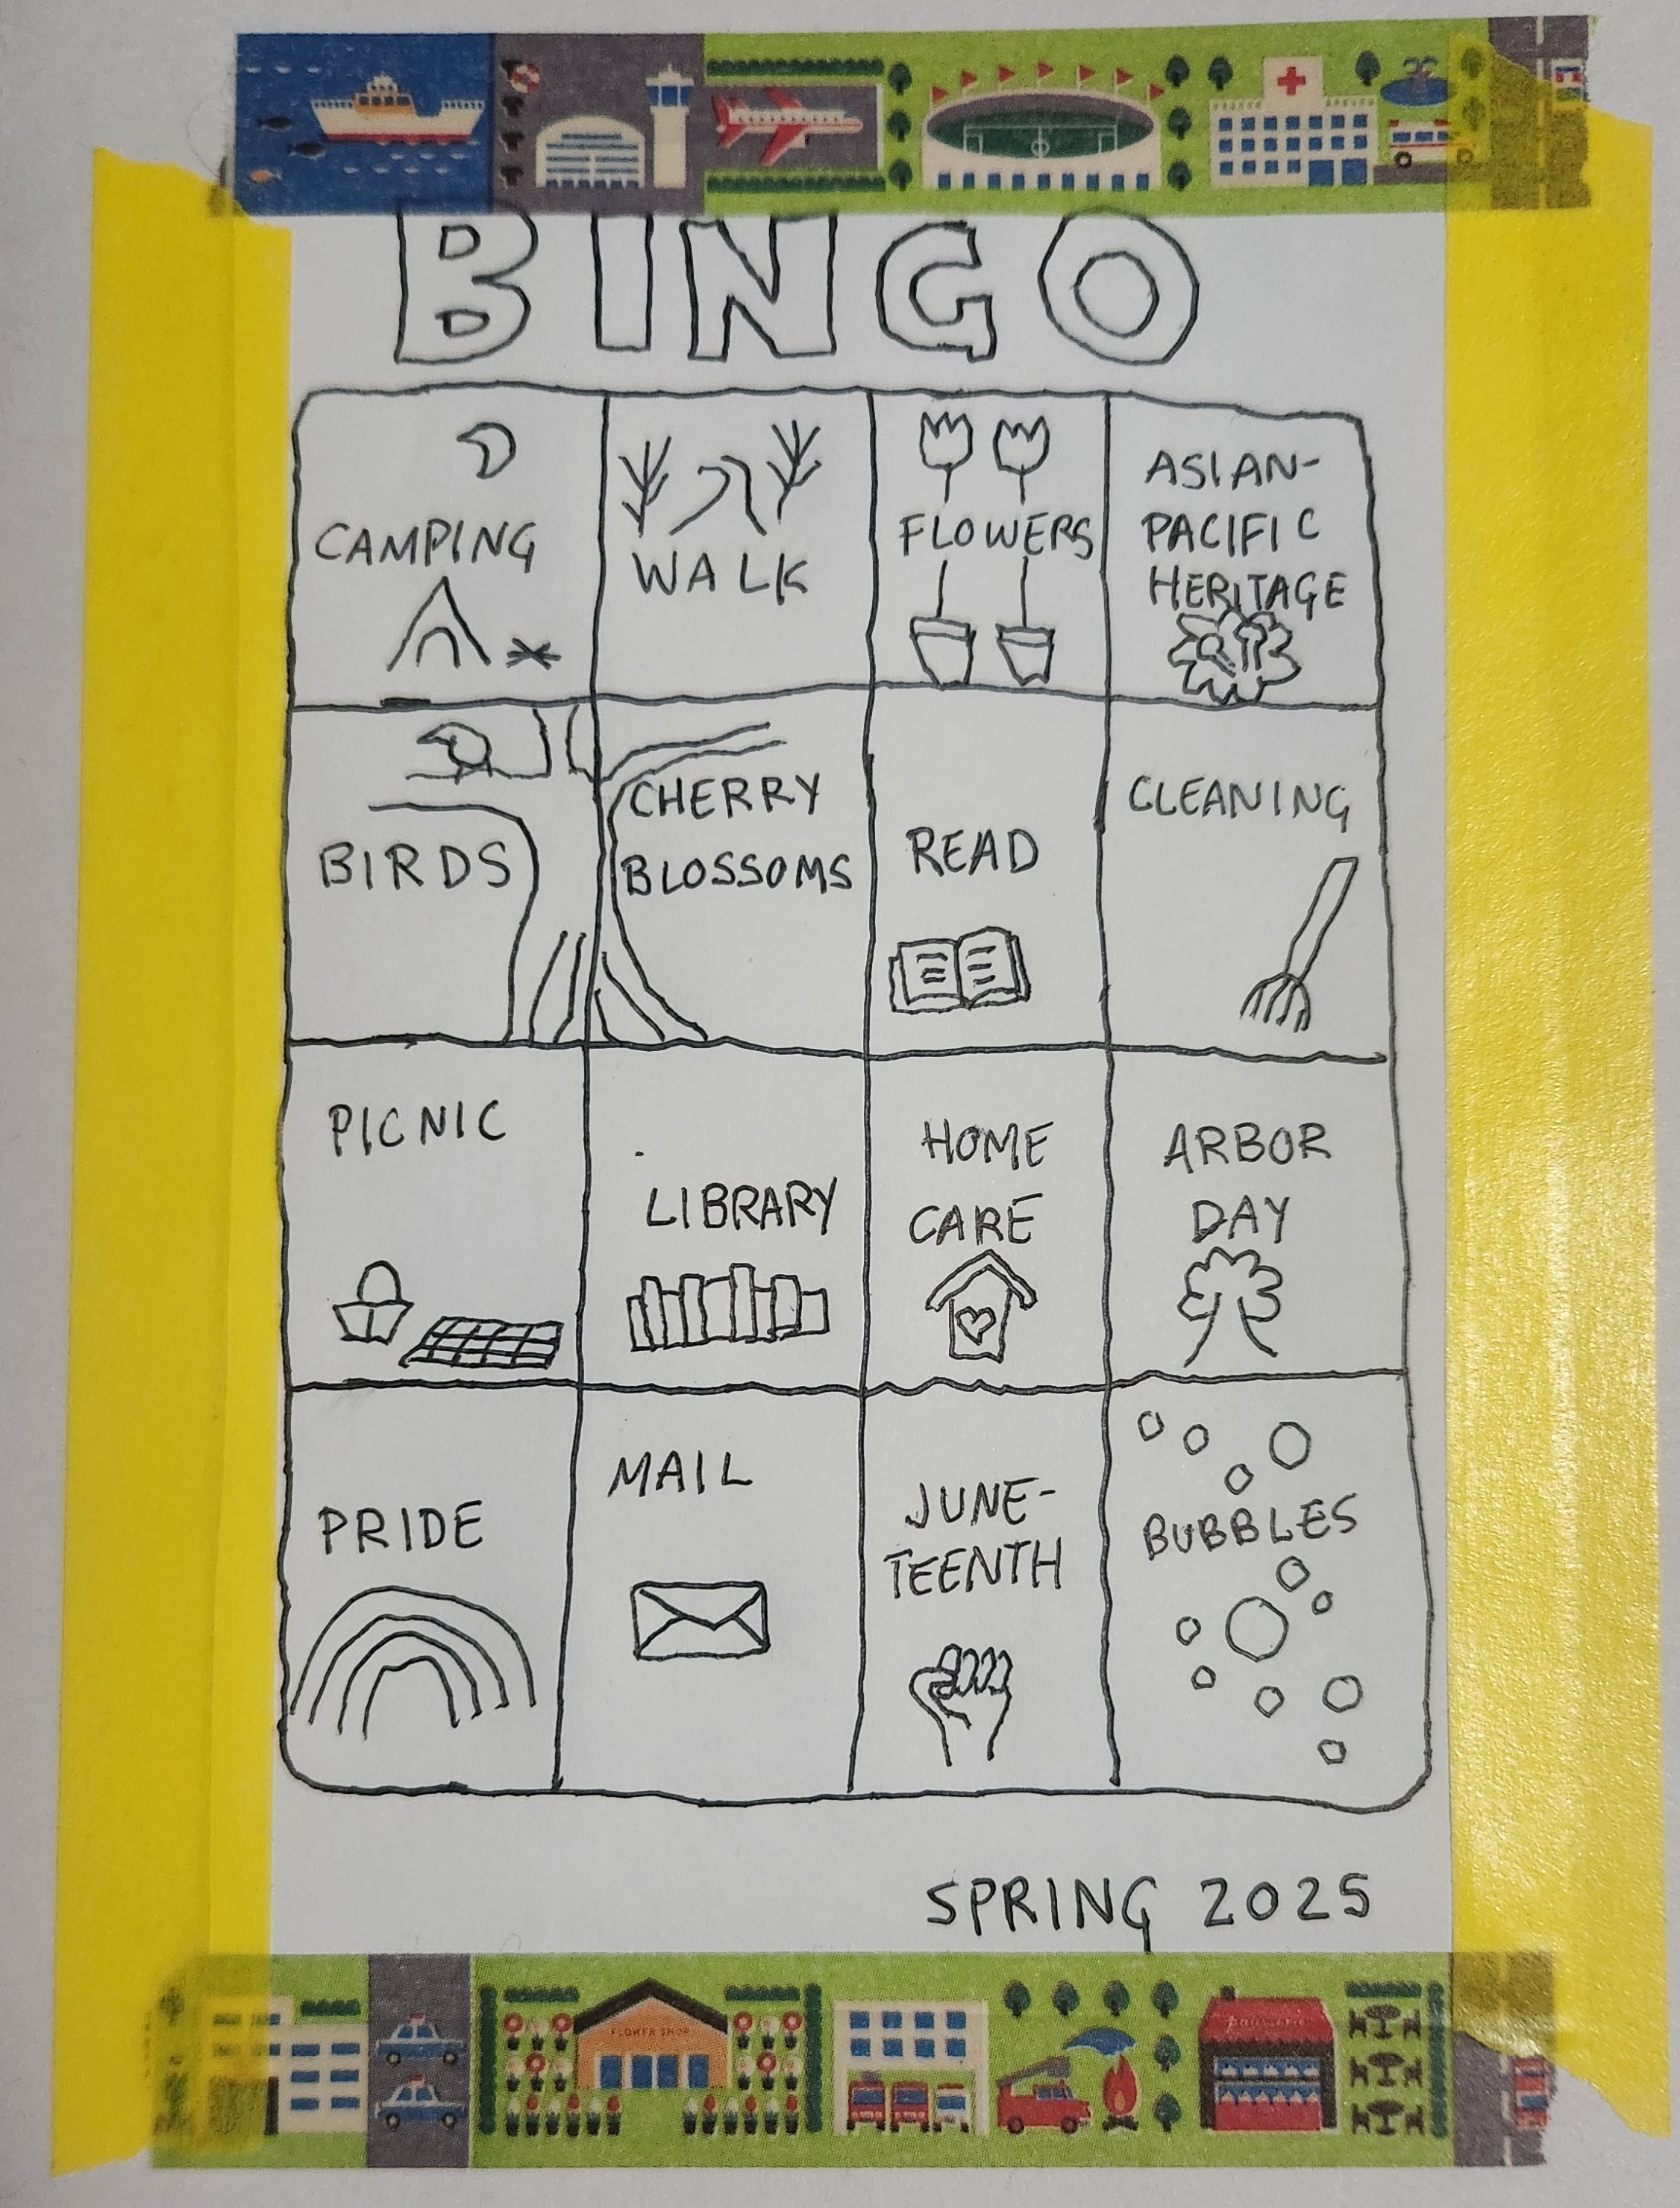 BINGO
CAMPING
WALK
FLOWERS
ASIAN-
PACIFIC
HERITAGE
BIRDS
CHERRY
BLOSSOMS
READ
CLEANING
PICNIC
LIBRARY
HOME
CARE
ARBOR
DAY
PRIDE
MAIL
JUNE-
TEENTH
BUBBLES
SPRING 2025
FLOWER SHOP